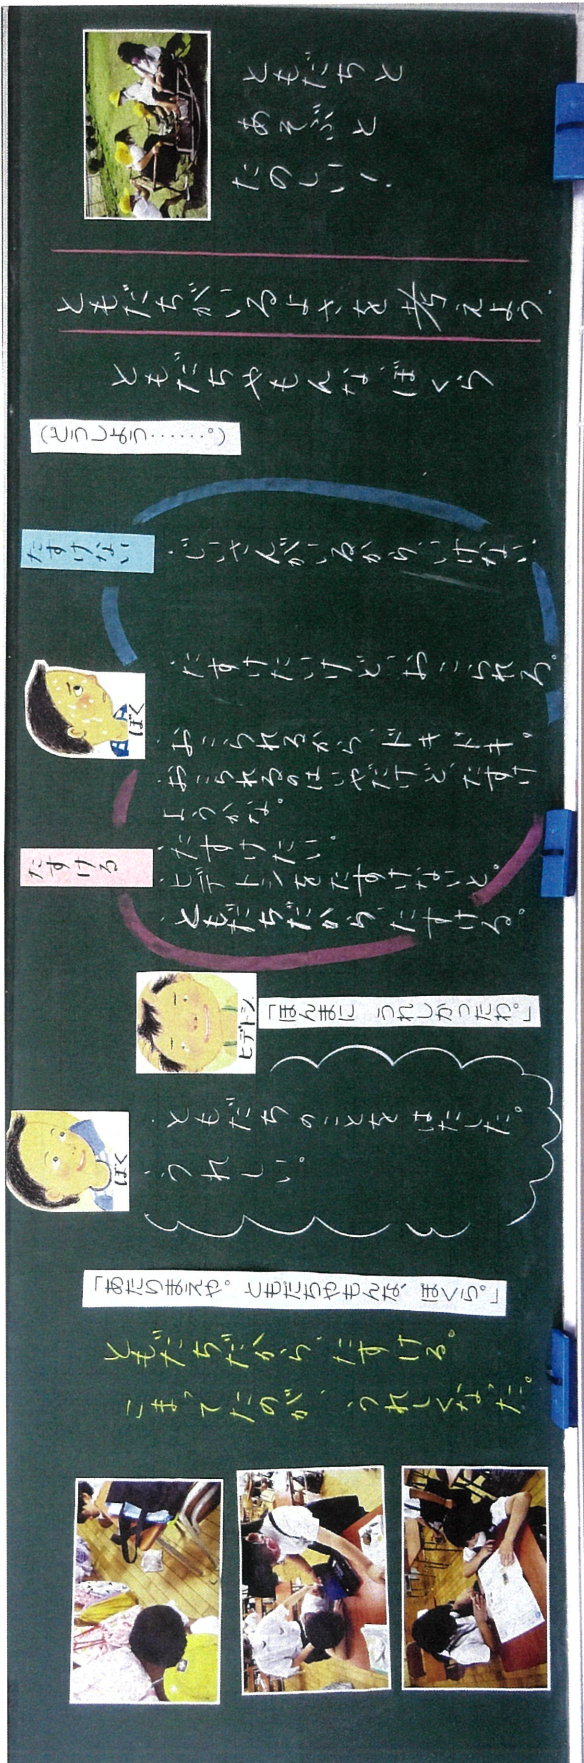 ともだちと
あそぶと
たのしい！
ともだちがいるよさを考えよう。
ともだちやもんな、ぼくら
（どうしよう……。）
たすけない
・じいさんがいるから、いけない。
・たすけたいけど、おこられる。
ぼく
・おこられるから、ドキドキ。
・おこられるのはいやだけど、たすけ
ようかな。
・たすけたい。
たすける
・ヒデトシをたすけないと。
・ともだちだから、たすける。
ヒデトシ
「ほんまに　うれしかったわ。」
・ともだちのことを
・うれしい。
ぼく
「あたりまえや。ともだちやもんな、ぼくら。」
ともだちだから、たすける。
こまってたのが、うれしくなった。